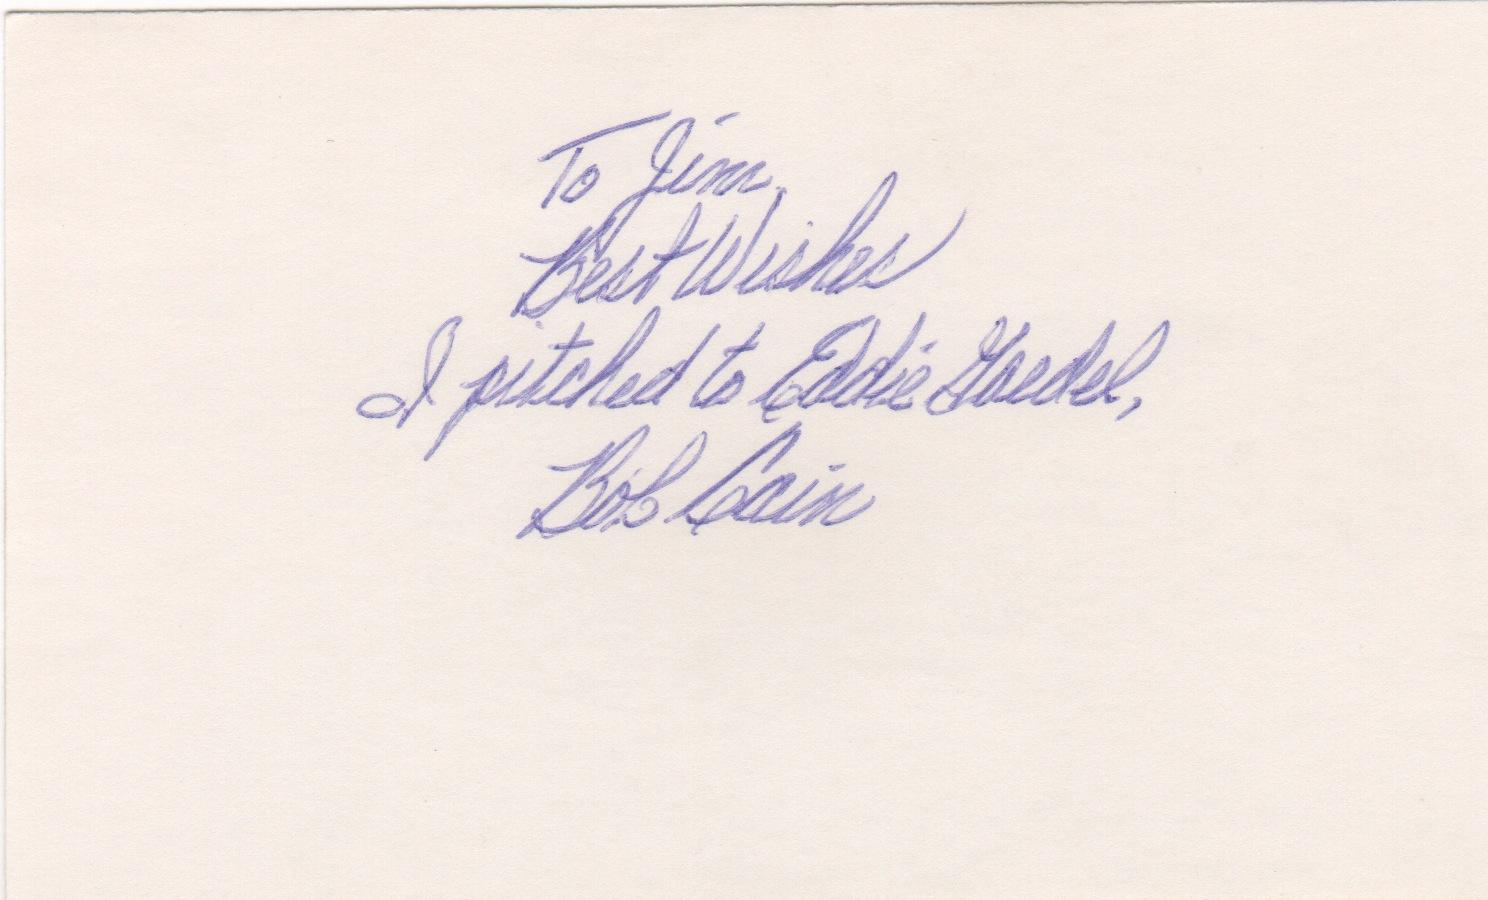 To Jim,
Best Wishes
I pitched to Eddie Gaedel,
Bob Cain